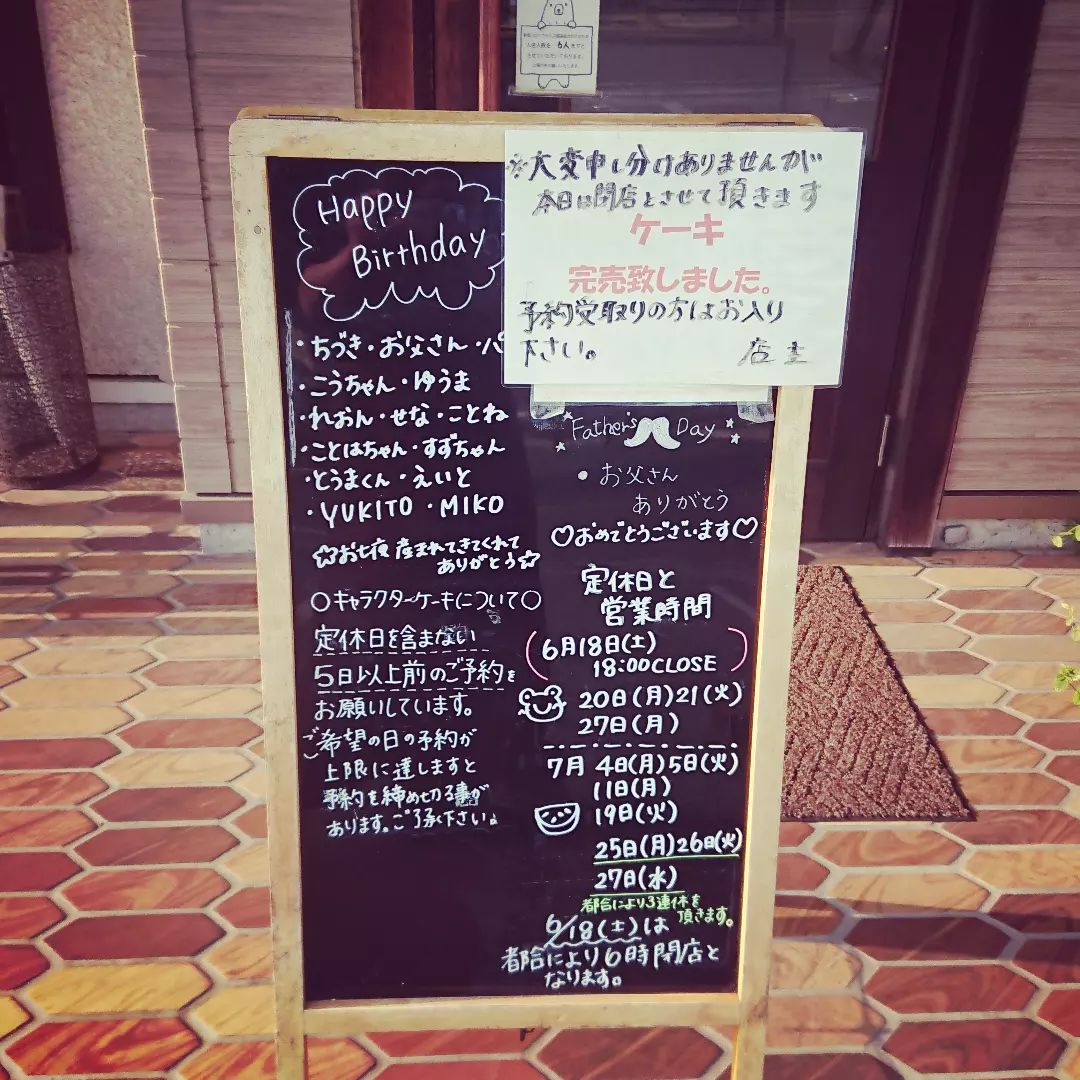 6人
※大変申し分けありませんが
本日は閉店とさせて頂きます
ケーキ
完売致しました。
予約受取りの方はお入り
下さい。 店主
Happy
Birthday
・ちづき・お父さん・パ
・こうちゃん・ゆうま
・れおん・せな・ことね
・ことはちゃん・すずちゃん
・とうまくん・えいと
・YUKITO・MIKO
☆お七夜 産まれてきてくれて
ありがとう☆
○キャラクターケーキについて○
定休日を含まない
5日以上前のご予約を
お願いしています。
ご希望の日の予約が
上限に達しますと
予約を締め切る事が
あります。ご了承下さい。
Father's Day
・お父さん
ありがとう
♡おめでとうございます♡
定休日と
営業時間
6月18日(土)
18:00CLOSE
20日(月)21(火)
27日(月)
7月 4日(月)5日(火)
11日(月)
19日(火)
25日(月)26日(火)
27日(水)
都合により3連休を
頂きます。
6/18(土)は
都合により6時閉店と
なります。